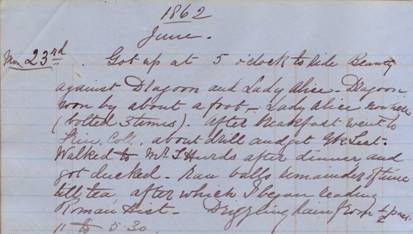 1862
June.
Mon 23rd. Got up at 5 o'clock to ride Beauty
against Dragoon and Lady Alice - Dragoon
won by about a foot - Lady Alice
(bolted 3 times). After breakfast went to
Coll. about drill and get
Walked to Mr. T. Hurds after dinner and
got ducked. Ran balls remainder of time
till tea, after which I began reading
Roman Hist. - Drizzling rain from
11 to 5.30